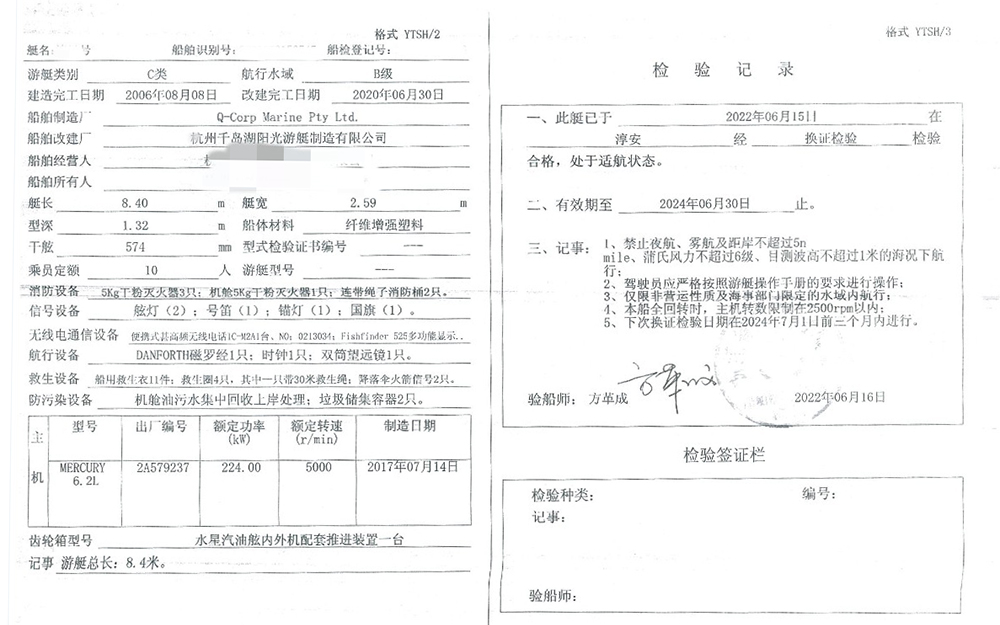 格式 YTSH/2
艇名: 号 船舶识别号: 船检登记号:
游艇类别 C类 航行水域 B级
建造完工日期 2006年08月08日 改建完工日期 2020年06月30日
船舶制造厂 Q-Corp Marine Pty Ltd.
船舶改建厂 杭州千岛湖阳光游艇制造有限公司
船舶经营人
船舶所有人
艇长 8.40 m 艇宽 2.59 m
型深 1.32 m 船体材料 纤维增强塑料
干舷 574 mm 型式检验证书编号 ---
乘员定额 10 人 游艇型号 ---
消防设备 5Kg干粉灭火器3只; 机舱5Kg干粉灭火器1只; 连带绳子消防桶2只。
信号设备 舷灯(2); 号笛(1); 锚灯(1); 国旗(1)。
无线电通信设备 便携式甚高频无线电话IC-M2A1台、NO: 0213034; Fishfinder 525多功能显示..
航行设备 DANFORTH磁罗经1只; 时钟1只; 双筒望远镜1只。
救生设备 船用救生衣11件; 救生圈4只, 其中一只带30米救生绳; 降落伞火箭信号2只。
防污染设备 机舱油污水集中回收上岸处理; 垃圾储集容器2只。
主机 型号 出厂编号 额定功率 (kW) 额定转速 (r/min) 制造日期
MERCURY 6.2L 2A579237 224.00 5000 2017年07月14日
齿轮箱型号 水星汽油舷内外机配套推进装置一台
记事 游艇总长: 8.4米。
格式 YTSH/3
检 验 记 录
一、此艇已于 2022年06月15日 在
淳安 经 换证检验 检验
合格, 处于适航状态。
二、有效期至 2024年06月30日 止。
三、记事: 1、禁止夜航、雾航及距岸不超过5n
mile、蒲氏风力不超过6级、目测波高不超过1米的海况下航
行;
2、驾驶员应严格按照游艇操作手册的要求进行操作;
3、仅限非营运性质及海事部门限定的水域内航行;
4、本船全回转时, 主机转数限制在2500rpm以内;
5、下次换证检验日期在2024年7月1日前三个月内进行。
验船师: 方革成 2022年06月16日
检验签证栏
检验种类: 编号:
记事:
验船师: